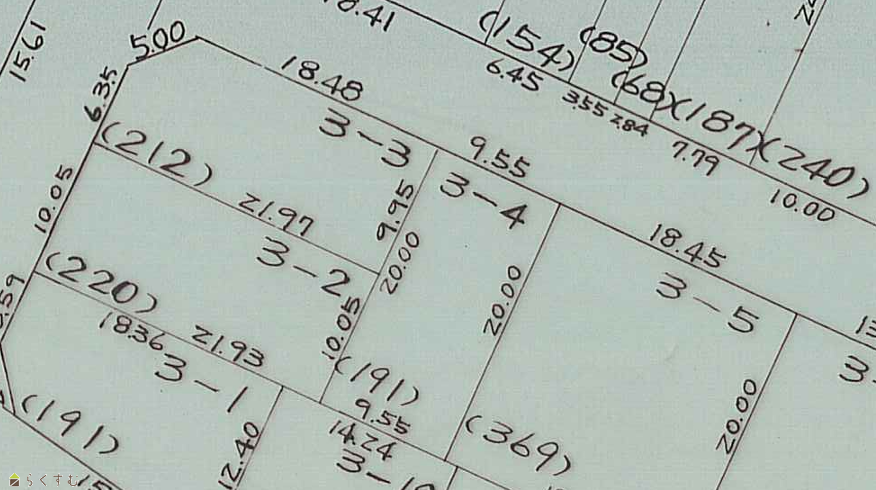 15.61
5.00
8.41
(154)
(85)
6.45
(68)
(187)
(240)
3.55
2.84
7.79
10.00
6.35
18.48
3-3
9.55
3-4
(212)
21.97
9.95
20.00
10.05
3-2
18.45
3-5
20.00
(220)
18.36
21.93
10.05
3-1
(191)
9.55
14.24
(369)
20.00
(191)
12.40
3-10
らくすむ